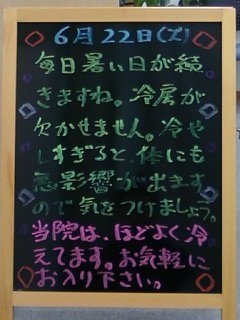 6月22日(火)
毎日暑い日が続
きますね。冷房が
欠かせません。冷や
しすぎると、体にも
悪影響が出ます
ので気をつけましょう。
当院は、ほどよく冷
えてます。お気軽に
お入り下さい。